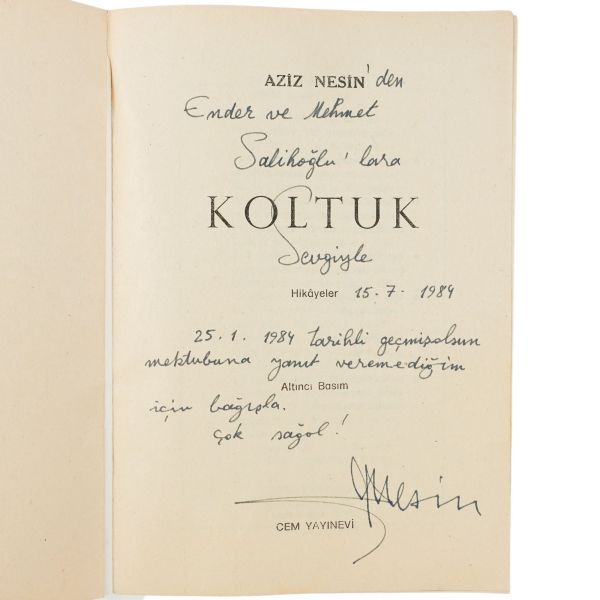 AZİZ NESİN'den
Ender ve Mehmet
Salihoğlu'lara
KOLTUK
Sevgiyle
Hikâyeler 15.7.1984
25.1.1984 tarihli geçmişolsun
mektubuna yanıt veremediğim
Altıncı Basım
için bağışla.
Çok sağol!
ANesin
CEM YAYINEVİ